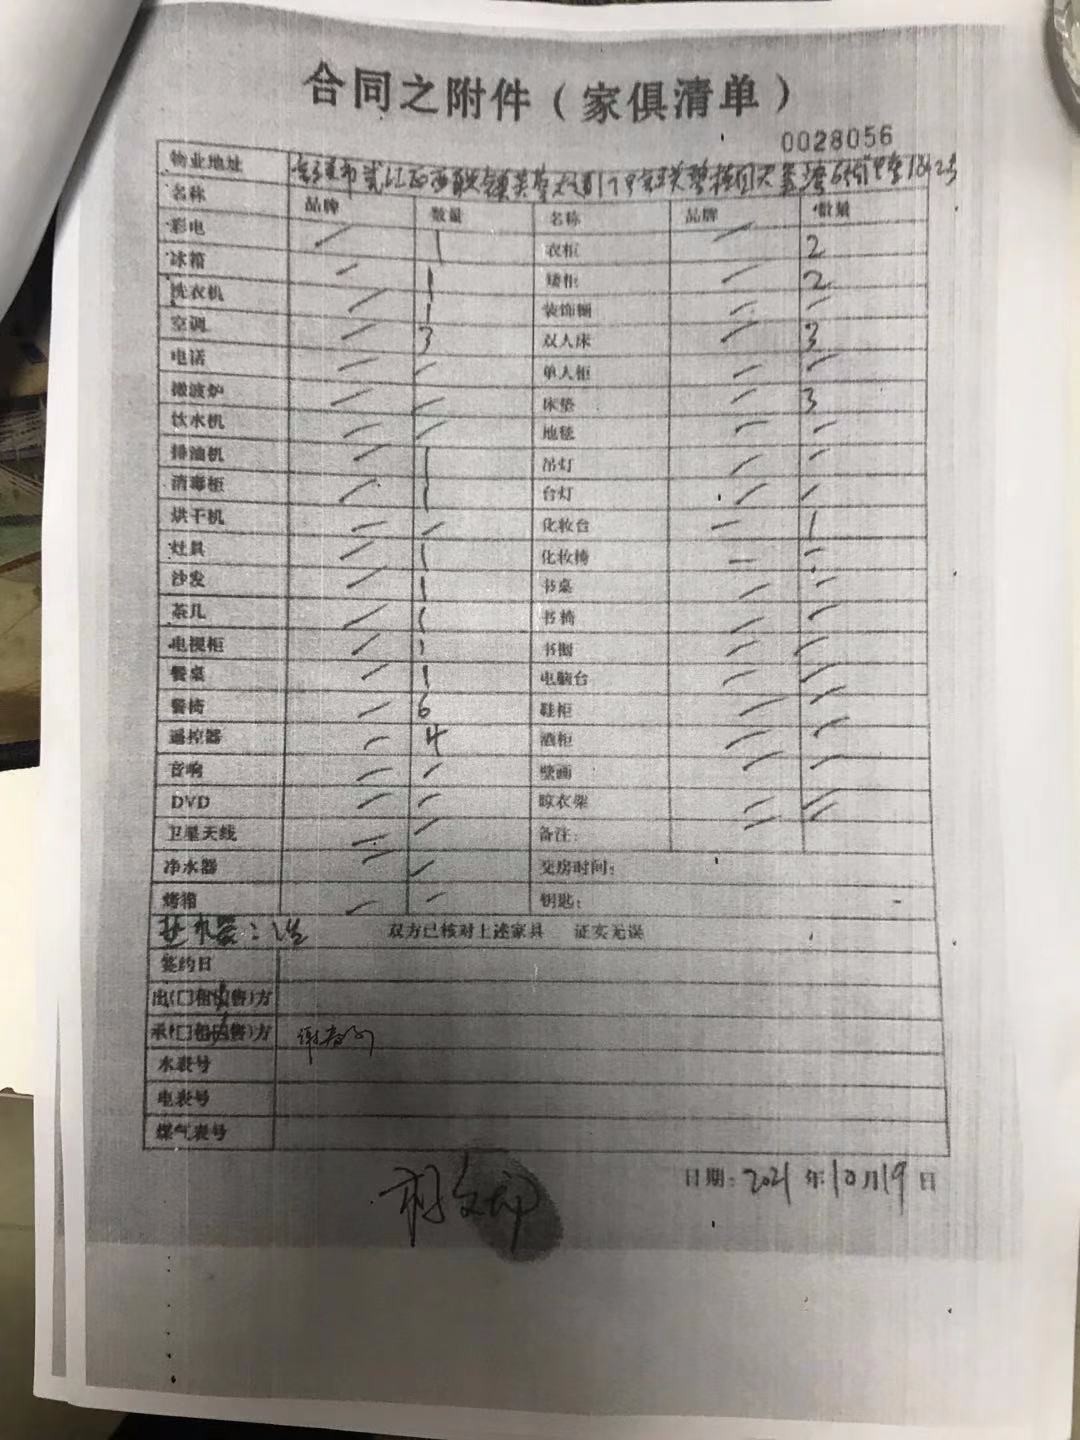 合同之附件（家俱清单）
0028056
物业地址 市武江区西联镇芙蓉大道
名称 品牌 数量 名称 品牌 数量
彩电 / 1 衣柜 / 2
冰箱 / 1 矮柜 / 2
洗衣机 / 1 装饰橱 / /
空调 / 3 双人床 / 3
电话 / / 单人柜 / /
微波炉 / / 床垫 / 3
饮水机 / / 地毯 / /
排油机 / 1 吊灯 / /
消毒柜 / 1 台灯 / /
烘干机 / / 化妆台 / 1
灶具 / 1 化妆椅 / /
沙发 / 1 书桌 / /
茶几 / 1 书椅 / /
电视柜 / 1 书橱 / /
餐桌 / 1 电脑台 / /
餐椅 / 6 鞋柜 / /
遥控器 / 4 酒柜 / /
音响 / / 壁画 / /
DVD / / 晾衣架 / /
卫星天线 / / 备注：
净水器 / / 交房时间：
烤箱 / / 钥匙：
双方已核对上述家具 证实无误
签约日
出(□租 售)方
承(□租 售)方
水表号
电表号
煤气表号
日期：2021年10月19日